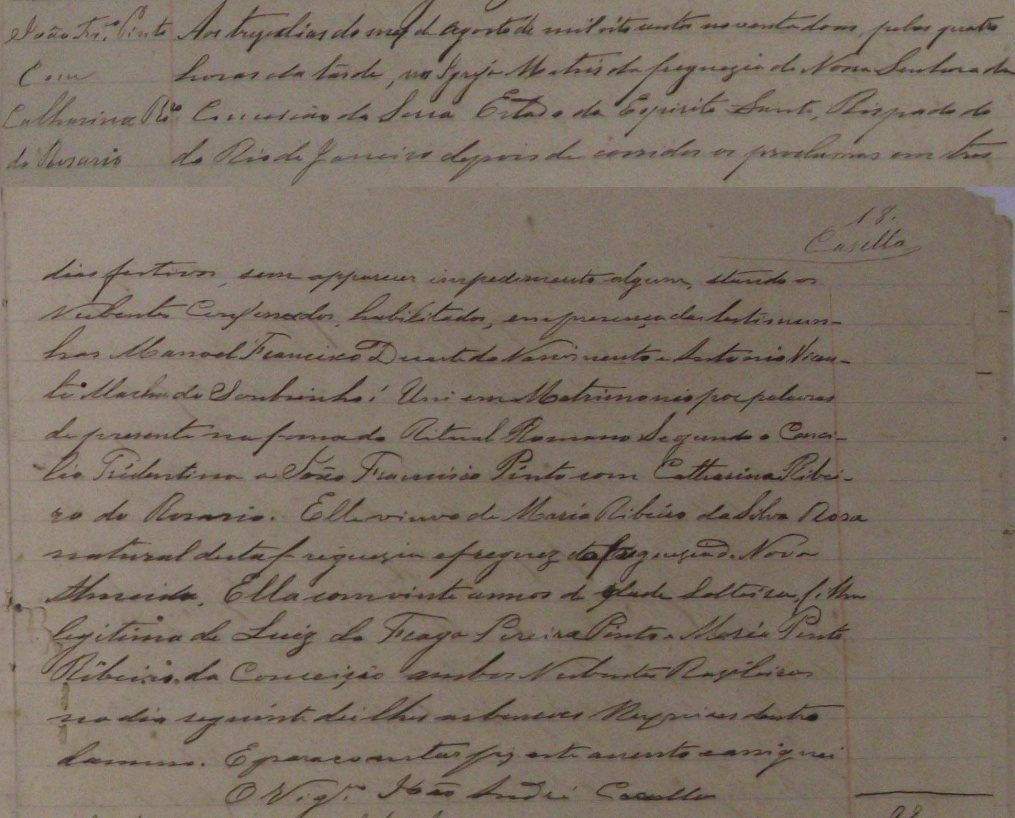 João Frco. Pinto
Com
Catharina Ribo.
do Rosario
Aos treze dias do mez de Agosto de mil oito centos noventa dous, pelas quatro
horas da tarde, na Igreja Matris da freguezia de Nossa Senhora da
Conceição da Serra Estado do Espirito Santo, Bispado do
do Rio de Janeiro depois de corridos os proclamas em tres
18.
Casella
dias festivos, sem apparecer impedimento algum, stando os
Nubentes Confessados, habilitados, em presença das testimun-
has Manoel Francisco Duarte do Nascimento e Antonio Vicen-
te Machado Sobrinho! Uni em Matrimonio por palavras
de presente na forma do Ritual Romano Segundo o Conci-
lio Tridentino a João Francisco Pinto com Catharina Ribei-
ro do Rosario. Elle viuvo de Maria Ribeiro da Silva Rosa
natural desta freguezia e freguez da freguezia d. Nova
Almeida. Ella com vinte annos de idade Solteira, filha
legitima de Luiz da Fraga Pereira Pinto e Maria Pinto
Ribeiro da Conceição ambos Nubentes Brazileiros
no dia seguinte dei lhes as bencoes Nupciaes dentro
da missa. E para constar fiz este assento e assignei
O Vigro. João André Casella